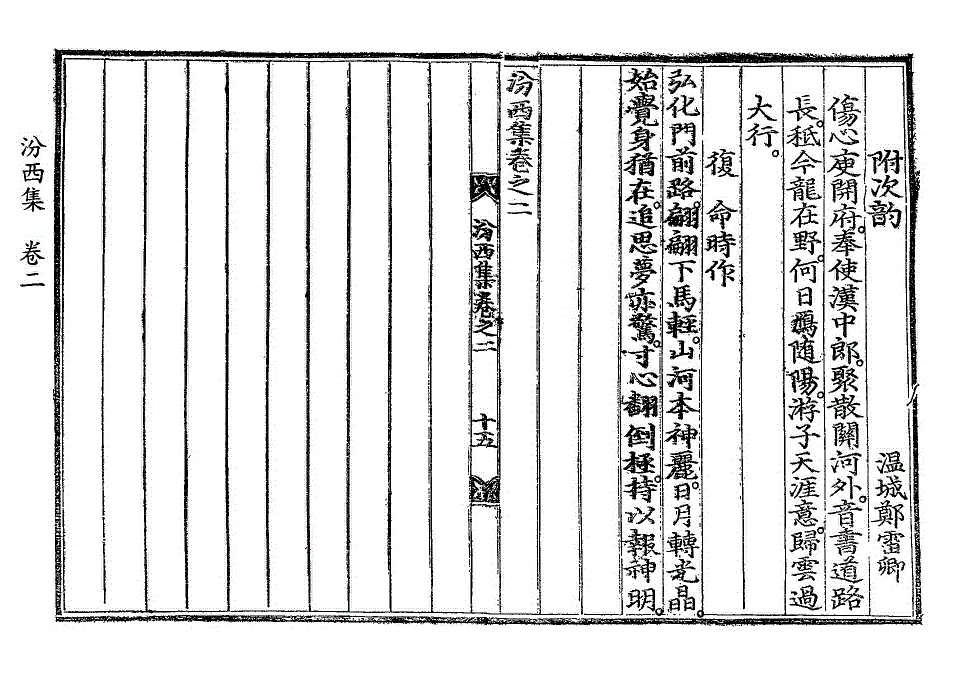 附次韵 温城鄭雷卿
傷心庾開府。奉使漢中郎。聚散關河外。音書道路
長。秪今龍在野。何日鴈随陽。游子天涯意。歸雲過
大行。
復 命時作
弘化門前路。翩翩下馬輕。山河本神麗。日月轉光晶。
始覺身猶在。追思夢亦驚。寸心翻倒極。持以報神明。
汾西集卷之二
汾西集卷之二 十五
汾西集 卷二